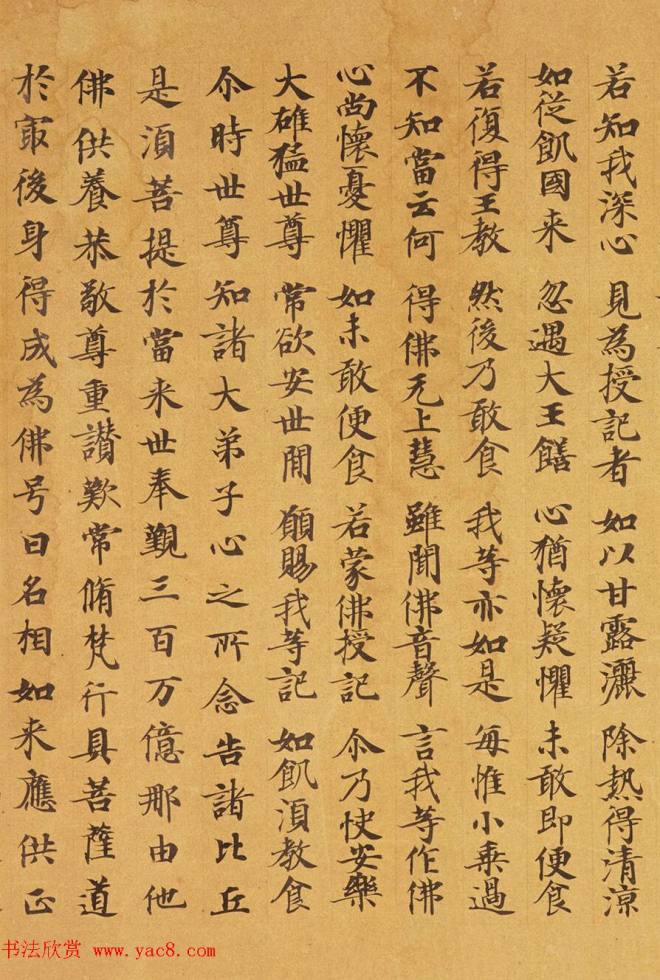 若知我深心 見為授記者 如以甘露灑 除热得清涼
如從飢國来 忽遇大王饍 心猶懷疑懼 未敢即便食
若復得王教 然後乃敢食 我等亦如是 每惟小乗過
不知當云何 得佛无上慧 雖聞佛音聲 言我等作佛
心尚懷憂懼 如未敢便食 若蒙佛授記 尒乃快安樂
大雄猛世尊 常欲安世間 願賜我等記 如飢湏教食
尒時世尊知諸大弟子心之所念告諸比丘
是湏菩提於當来世奉觐三百万億那由他
佛供養恭敬尊重讃歎常脩梵行具菩薩道
於寂後身得成為佛号曰名相如来應供正
书法欣赏 www.yac8.com